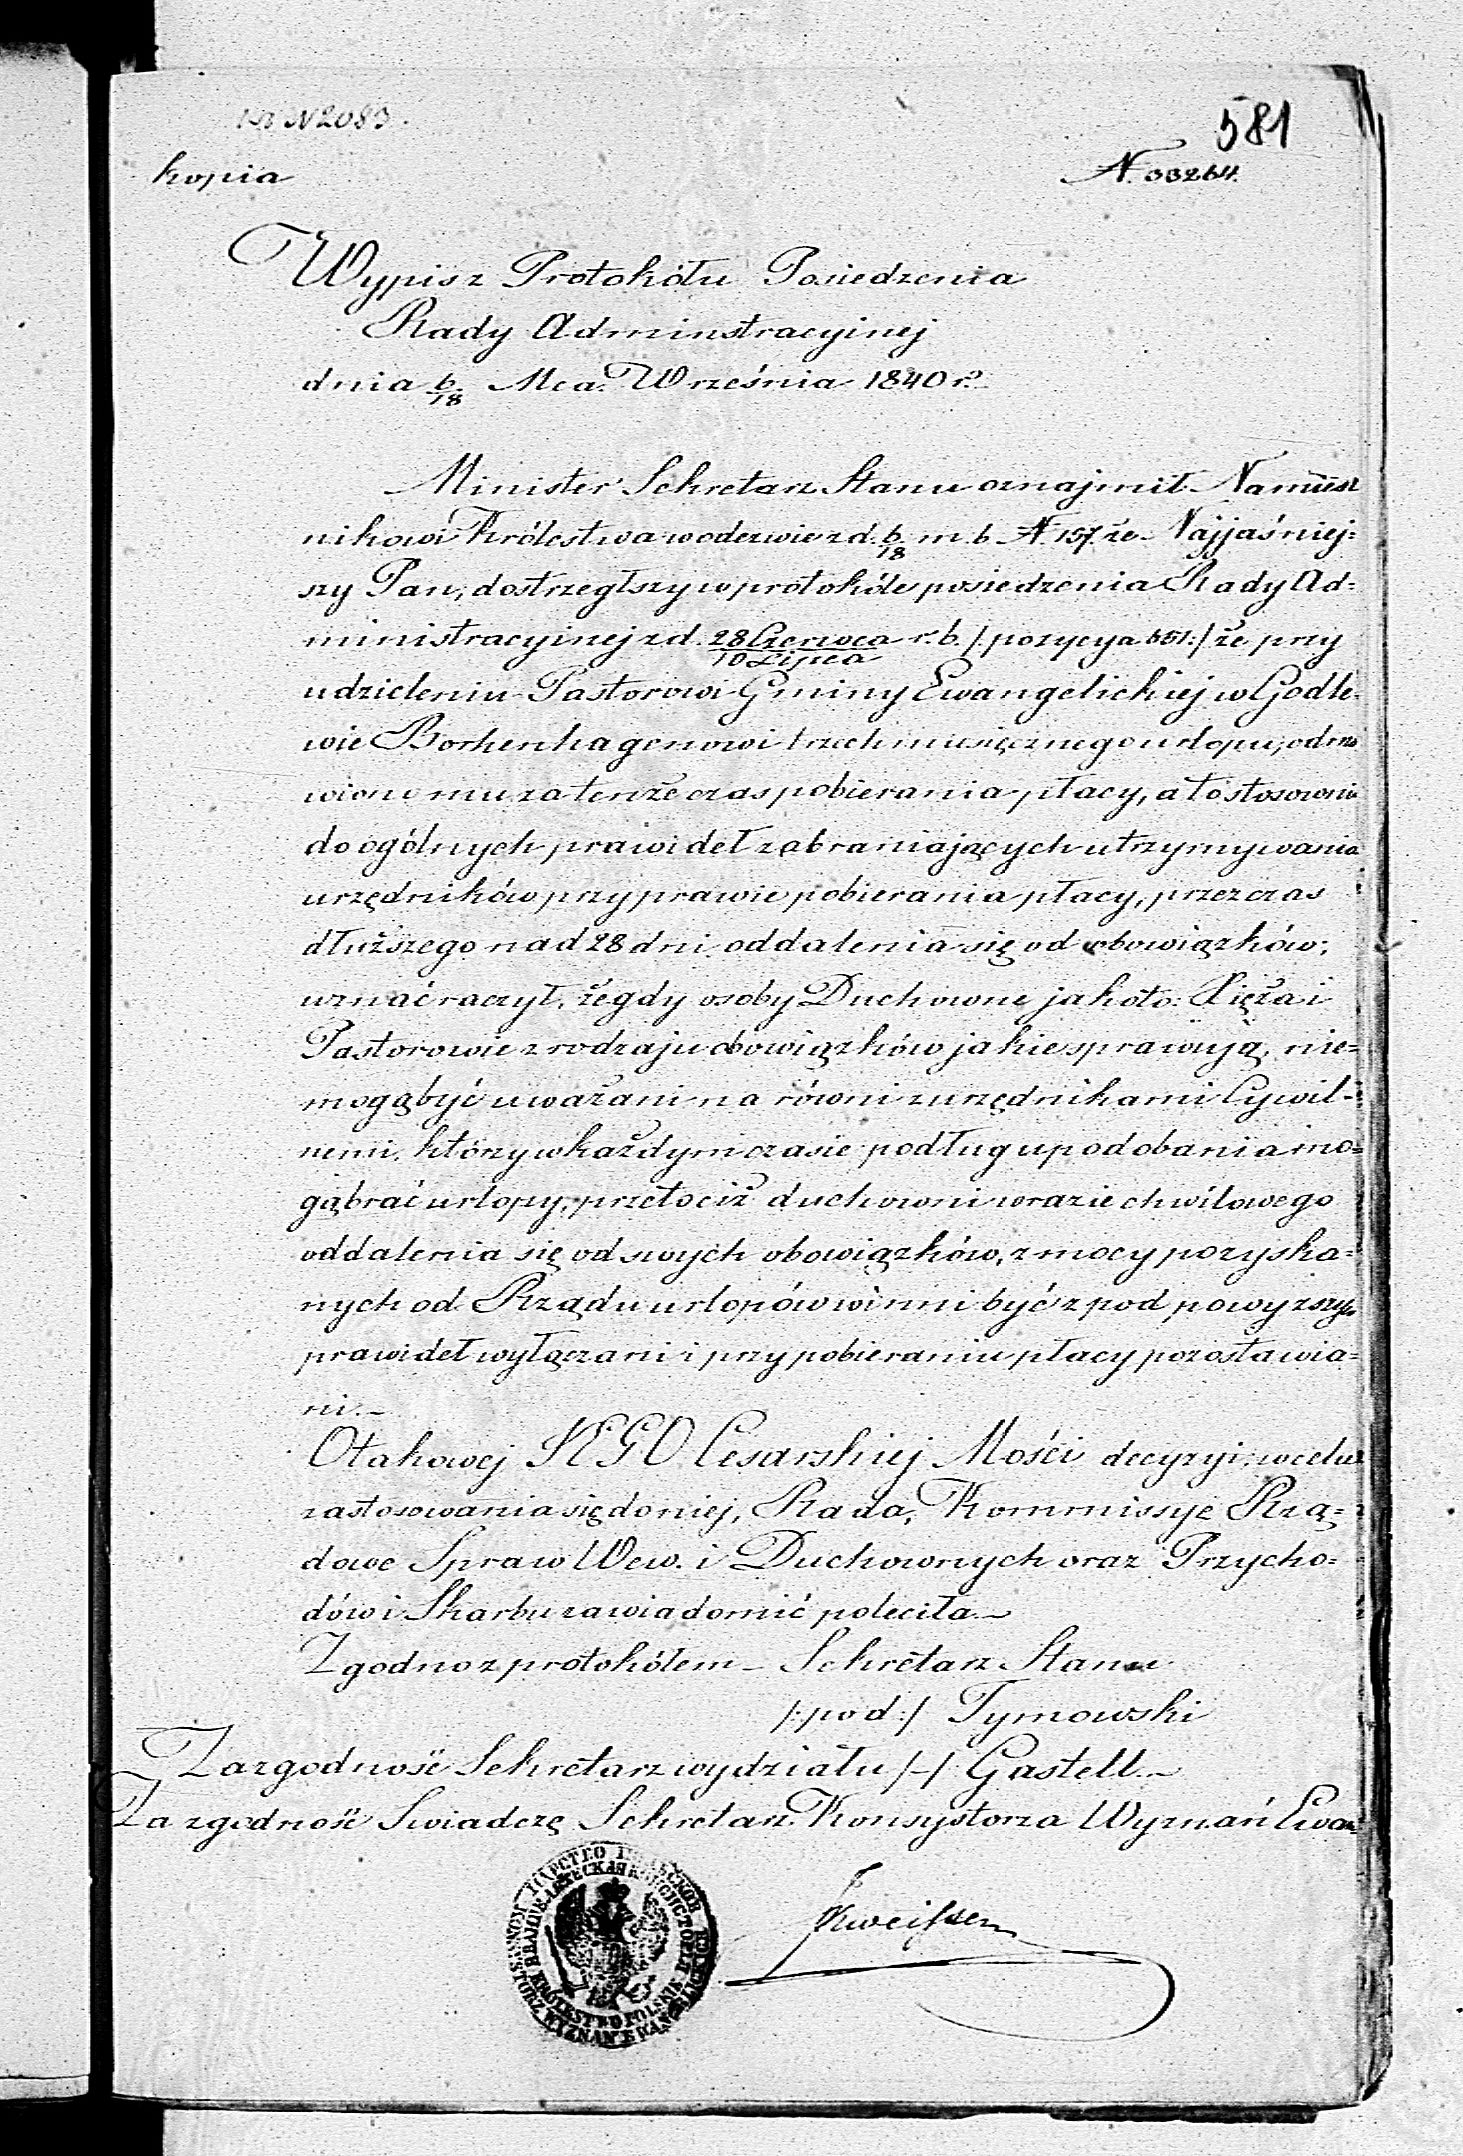 N 2083.
581
kopia
N. 33264.
Wypis z Protokółu Posiedzenia
Rady Adminstracyinej
dnia 6/18 Mca. Września 1840 r.
Minister Sekretarz Stanu oznajmił Namiest
nikowi Królestwa w odezwie z d. 6/18 m. b. N. 157 że Najjaśniej=
szy Pan, dostrzegłszy w protokóle posiedzenia Rady Ad=
ministracyinej z d. 28 Czerwca/10 Lipca r. b. /: pozycya 651:/ że przy
udzieleniu Pastorowi Gminy Ewangelickiej w Godle=
wie Borkenhagenowi trzechmiesięcznego urlopu, odmó
wiono mu za tenże czas pobierania płacy, a to stosownie
do ogólnych prawideł zabraniających utrzymywania
urzędników przy prawie pobierania płacy, przez czas
dłuższego nad 28 dni oddalenia się od obowiązków;
uznać raczył, że gdy osoby Duchowne jakoto: Xięża i
Pastorowie z rodzaju obowiązków jakie sprawują, nie=
mogą być uważani na równi z urzędnikami Cywil=
nemi, którzy w każdym czasie podług upodobania mo=
gą brać urlopy, przetoż duchowni w razie chwilowego
oddalenia się od swych obowiązków, z mocy pozyska=
nych od Rządu urlopów winni być z pod powyższych
prawideł wyłączani i przy pobieraniu płacy pozostawia=
ni.–
O takowej JEGO Cesarskiej Mości decyzyi, w celu
zastosowania się do niej, Rada, Kommissye Rzą=
dowe Spraw Wew. i Duchownych oraz Przycho=
dów i Skarbu zawiadomić poleciła.–
Zgodno z protokółem – Sekretarz Stanu
/: pod :/ Tymowski
Za zgodność Sekretarz wydziału /–/ Gastell.–
Za zgodność Swiadczę Sekretarz Konsystorza Wyznań Ewan=
KONSYSTORZ WYZNAŃ EWANGIELICKICH
KRÓLESTWO POLSKIE